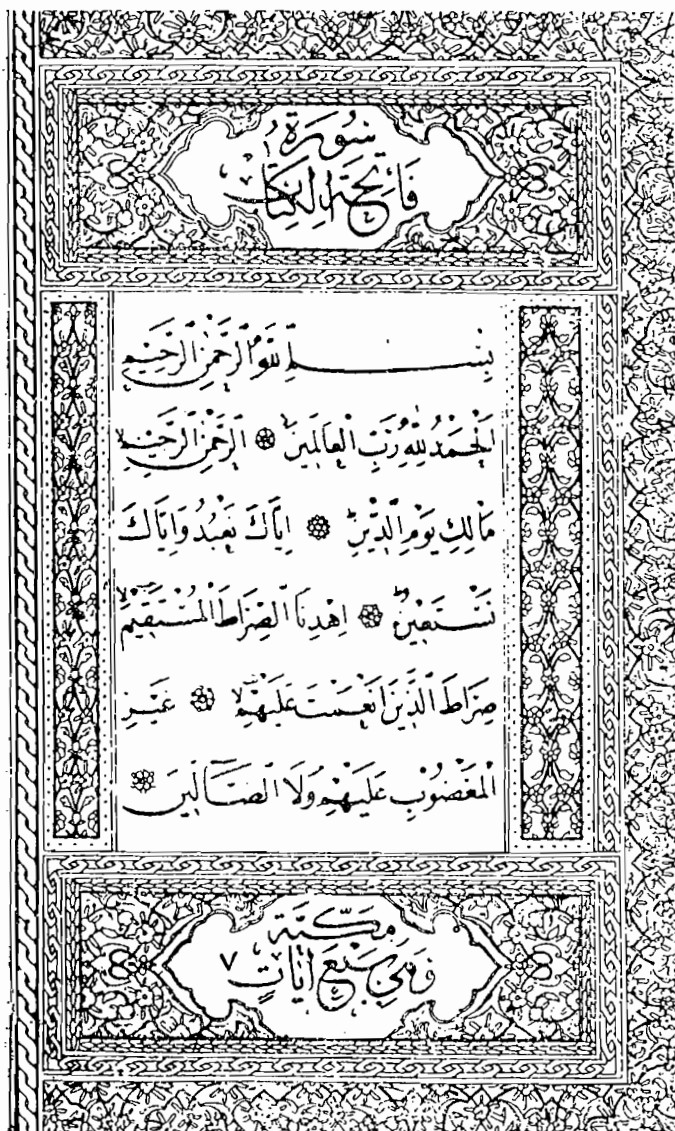 سُورَةُ
فَاتِحَةِ الْكِتَابِ
بِسْمِ اللّٰهِ الرَّحْمٰنِ الرَّحِيمِ
اَلْحَمْدُ لِلّٰهِ رَبِّ الْعَالَمِينَ ۞ اَلرَّحْمٰنِ الرَّحِيمِۙ
مَالِكِ يَوْمِ الدِّينِۜ ۞ اِيَّاكَ نَعْبُدُ وَاِيَّاكَ
نَسْتَعِينُۜ ۞ اِهْدِنَا الصِّرَاطَ الْمُسْتَقِيمَۙ
صِرَاطَ الَّذِينَ اَنْعَمْتَ عَلَيْهِمْۙ ۞ غَيْرِ
الْمَغْضُوبِ عَلَيْهِمْ وَلَا الضَّٓالِّينَ ۞
مَكِّيَّة
وَهِيَ سَبْعُ اٰيَاتٍ ٧